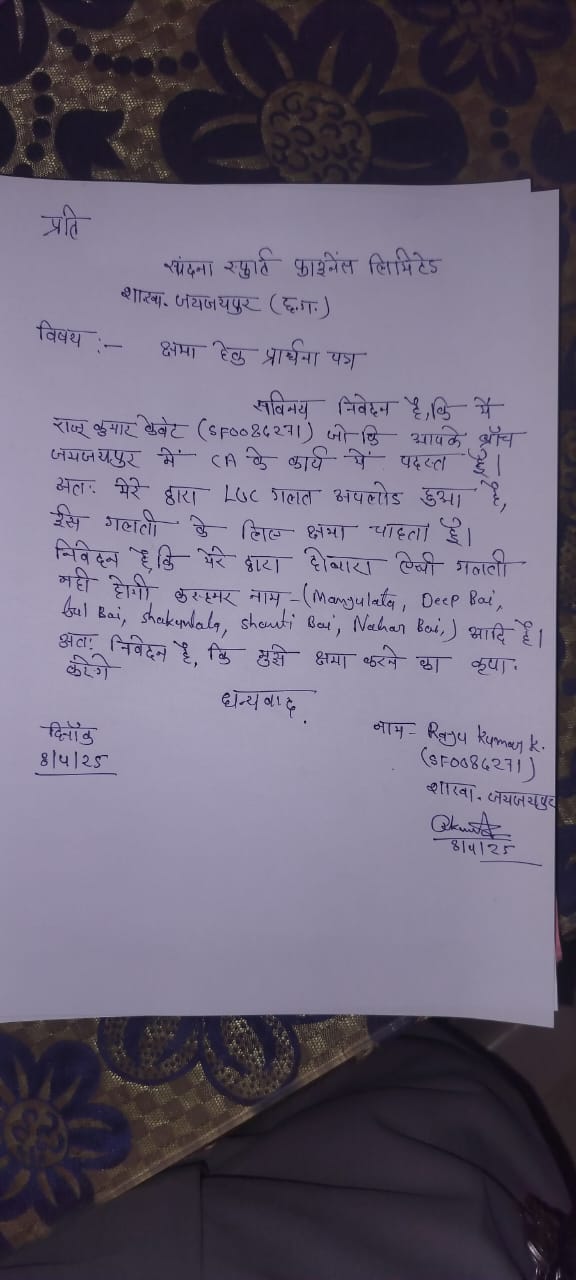 प्रति
स्पंदना स्फूर्ति फाइनेंस लिमिटेड
शाखा - जयजयपुर (छ.ग.)
विषय :- क्षमा हेतु प्रार्थना पत्र
सविनय निवेदन है, कि मैं
राजू कुमार केवट (SF0084271) जो कि आपके ब्रॉच
जयजयपुर में CA के कार्य में पदस्त हूँ।
अतः मेरे द्वारा LUC गलत अपलोड हुआ है,
इस गलती के लिए क्षमा चाहता हूँ।
निवेदन है, कि मेरे द्वारा दोबारा ऐसी गलती
नही होगी कस्टमर नाम - (Mangulata, Deep Bai,
Bai, Shakuntala, Shanti Bai, Nahar Bai,) आदि है।
अतः निवेदन है, कि मुझे क्षमा करने का कृपा
करेंगे
धन्यवाद
दिनॉक
8/4/25
नाम - Raju Kumar K.
(SF0084271)
शाखा - जयजयपुर
8/4/25